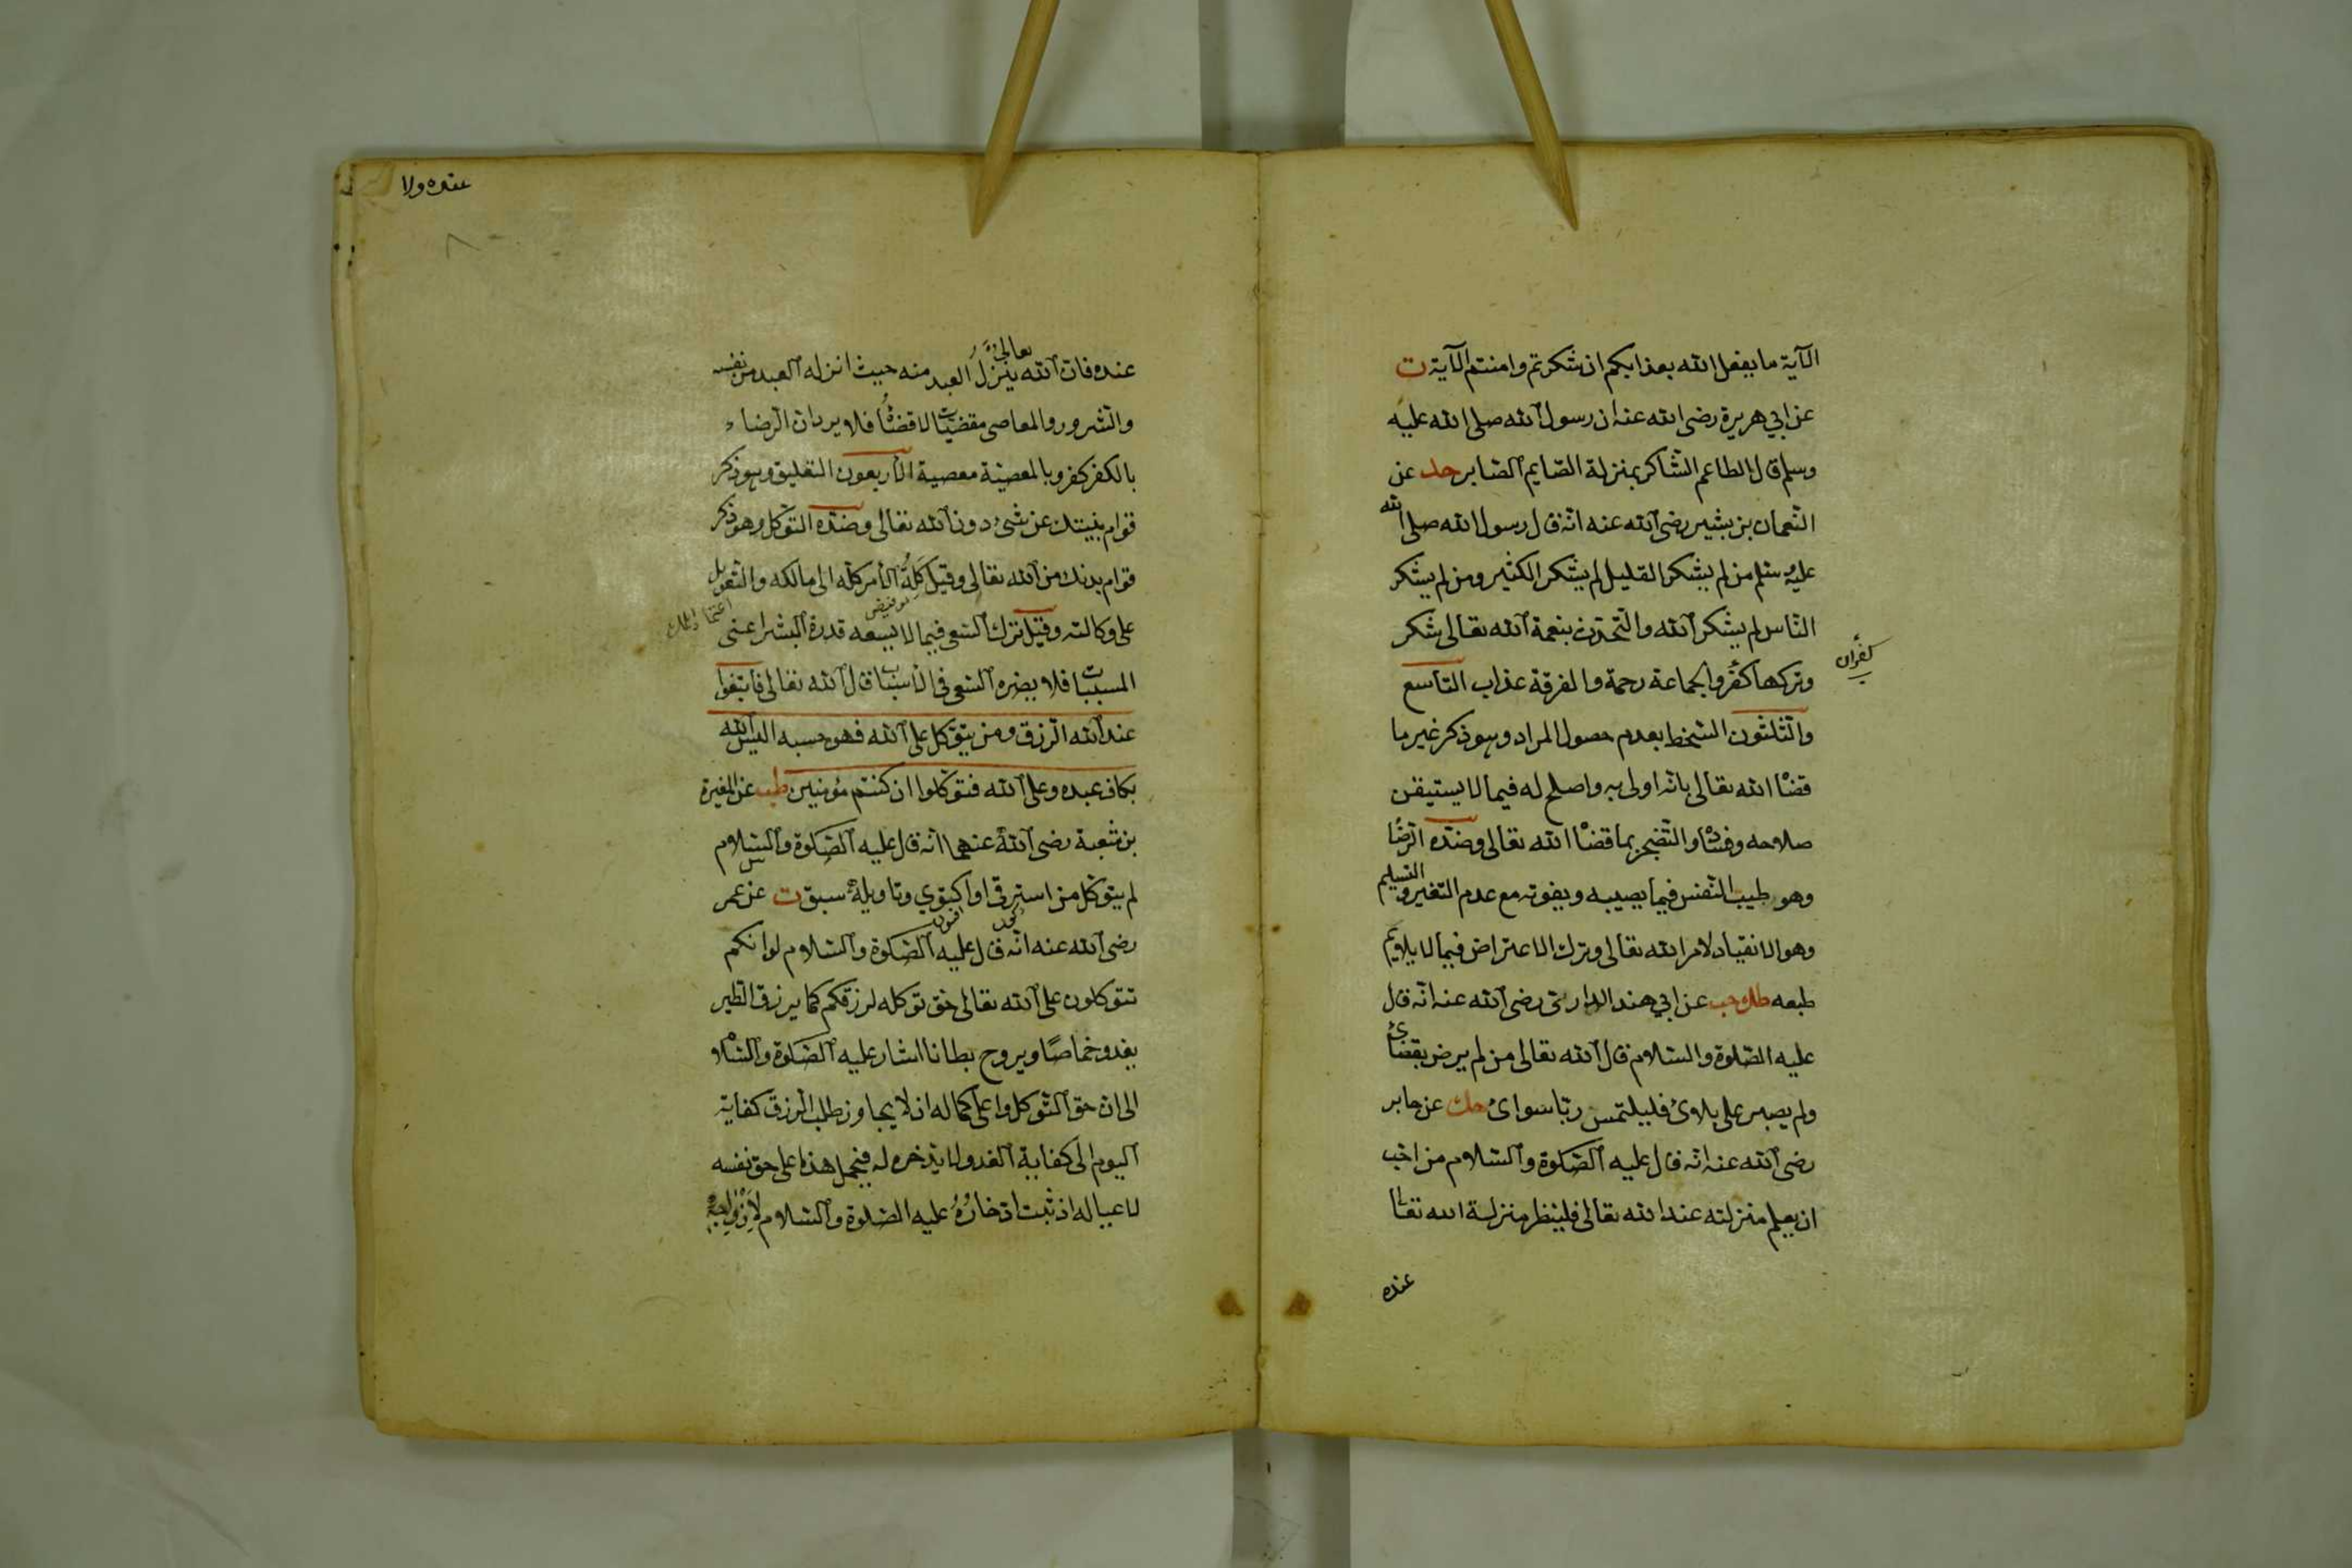 الآية ما يفعل الله بعذابكم ان شكرتم وامنتم الآية ت
عن ابي هريرة رضى الله عنه ان رسول الله صلى الله عليه
وسلم قال الطاعم الشاكر بمنزلة الصّايم الصّابر حد عن
النّعمان بن بشير رضى الله عنه انّه قال رسول الله صلى الله
عليه وسلم من لم يشكر القليل لم يشكر الكثير ومن لم يشكر
النّاس لم يشكر الله والتّحدّث بنعمة الله تعالى شكر
وتركها كفر والجماعة رحمة والفرقة عذاب التّاسع
كفران
والثّلثون السّخط بعدم حصول المراد وهو ذكر غير ما
قضا الله تعالى بانّه اولى به واصلح له فيما لا يستيقن
صلاحه وفساده والتّضجّر بما قضا الله تعالى وضدّه الرّضا
وهو طيب النّفس فيما يصيبه ويفوته مع عدم التغير والتسليم
وهو الانقياد لامر الله تعالى وترك الاعتراض فيما لا يلايم
طبعه طك حب عن ابي هند الدارىّ رضى الله عنه انّه قال
عليه الصّلوة والسّلام قال الله تعالى من لم يرض بقضائ
ولم يصبر على بلاوئ فليلتمس ربّا سوائ حك عن جابر
رضى الله عنه انّه قال عليه الصّلوة والسّلام من احبّ
ان يعلم منزلته عند الله تعالى فلينظر منزلة الله تعالى
عنده
عنده ولا
عنده فانّ الله تعالى ينزّل العبد منه حيث انزله العبد من نفسه
والشّرور والمعاصى مقضيّات لا قضاء فلا يرد ان الرّضاء
بالكفر كفر وبالمعصية معصية الأربعون التعليق وهو ذكر
قوام بنيتك عن شئ دون الله تعالى وضدّه التّوكّل وهو ذكر
قوام بدنك من الله تعالى وقيل كلة الأمر كلّه الى مالكه والتّعويل
تفويض
على وكالته وقيل ترك السّعى فيما لا يسعه قدرة البشر اعنى
المسبّبات فلا يضره السّعى فى الأسباب قال الله تعالى فابتغوا
عند الله الرّزق ومن يتوّكل على الله فهو حسبه اليس الله
بكاف عبده وعلى الله فتوكّلوا ان كنتم مؤمنين طب عن المغيرة
بن شعبة رضى الله عنهما انّه قال عليه الصّلوة والسّلام
لم يتوكّل من استرقى او اكتوي وتأويله سبق ت عن عمر
رضى الله عنه انّه قال عليه الصّلوة والسّلام لو انكم
تتوكلون على الله تعالى حق توكله لرزقكم كما يرزق الطّير
يغدو خماصًا ويروح بطانا اشار عليه الصّلوة والسّلام
الى انّ حق التّوكل واعلى كماله ان لا يجاوز طلب الرّزق كفاية
اليوم الى كفاية الغد ولا يدّخره له فيحمل هذا على حق نفسه
لا عياله اذ ثبت ادّخاره عليه الصّلوة والسّلام لأزواجه